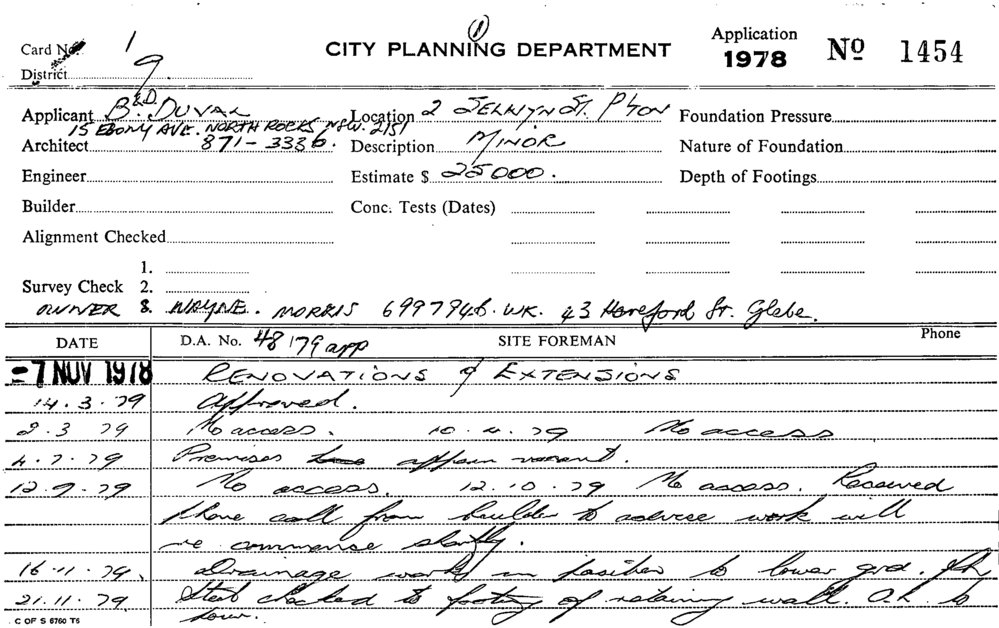 1
Card No. 1
CITY PLANNING DEPARTMENT
Application
1978 No 1454
District 9
Applicant B. & D. DUVAL Location 2 SELWYN ST. P'TON Foundation Pressure
15 EBONY AVE. NORTH ROCKS NSW. 2151
Architect 871-3336. Description MINOR Nature of Foundation
Engineer Estimate $ 25000. Depth of Footings
Builder Conc. Tests (Dates)
Alignment Checked
1.
Survey Check 2.
OWNER 3. WAYNE. MORRIS 6997946. WK. 43 Hereford St. Glebe.
DATE D.A. No. 48/79 app SITE FOREMAN Phone
-7 NOV 1978 RENOVATIONS & EXTENSIONS
14.3.79 Approved.
2.3.79 No access. 10.4.79 No access
4.7.79 Premises appear vacant.
12.9.79 No access. 12.10.79 No access. Received
phone call from builder to advise work will
re commence shortly.
16.11.79. Drainage works in position to lower grd.
21.11.79 Steel checked to footing of retaining wall. O.K. to
pour.
C OF S 6760 T5